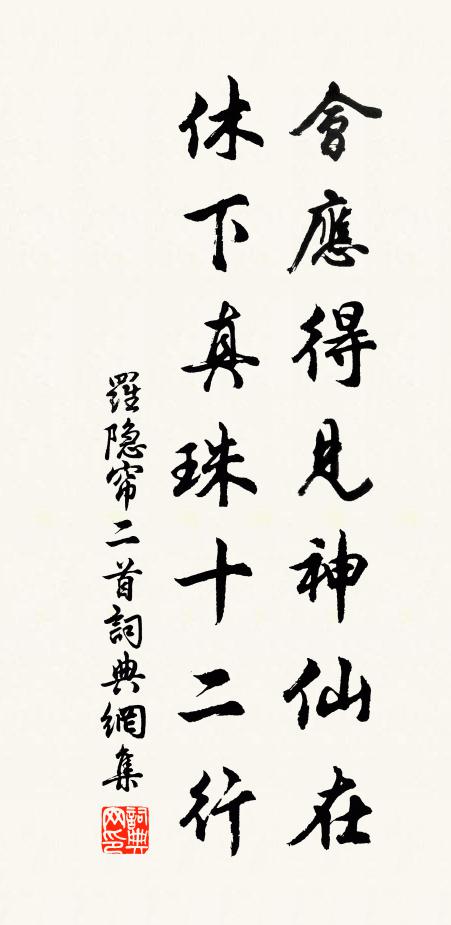 會應得見神仙在
休下真珠十二行
羅隐帘二首詞典網集
詞典网印